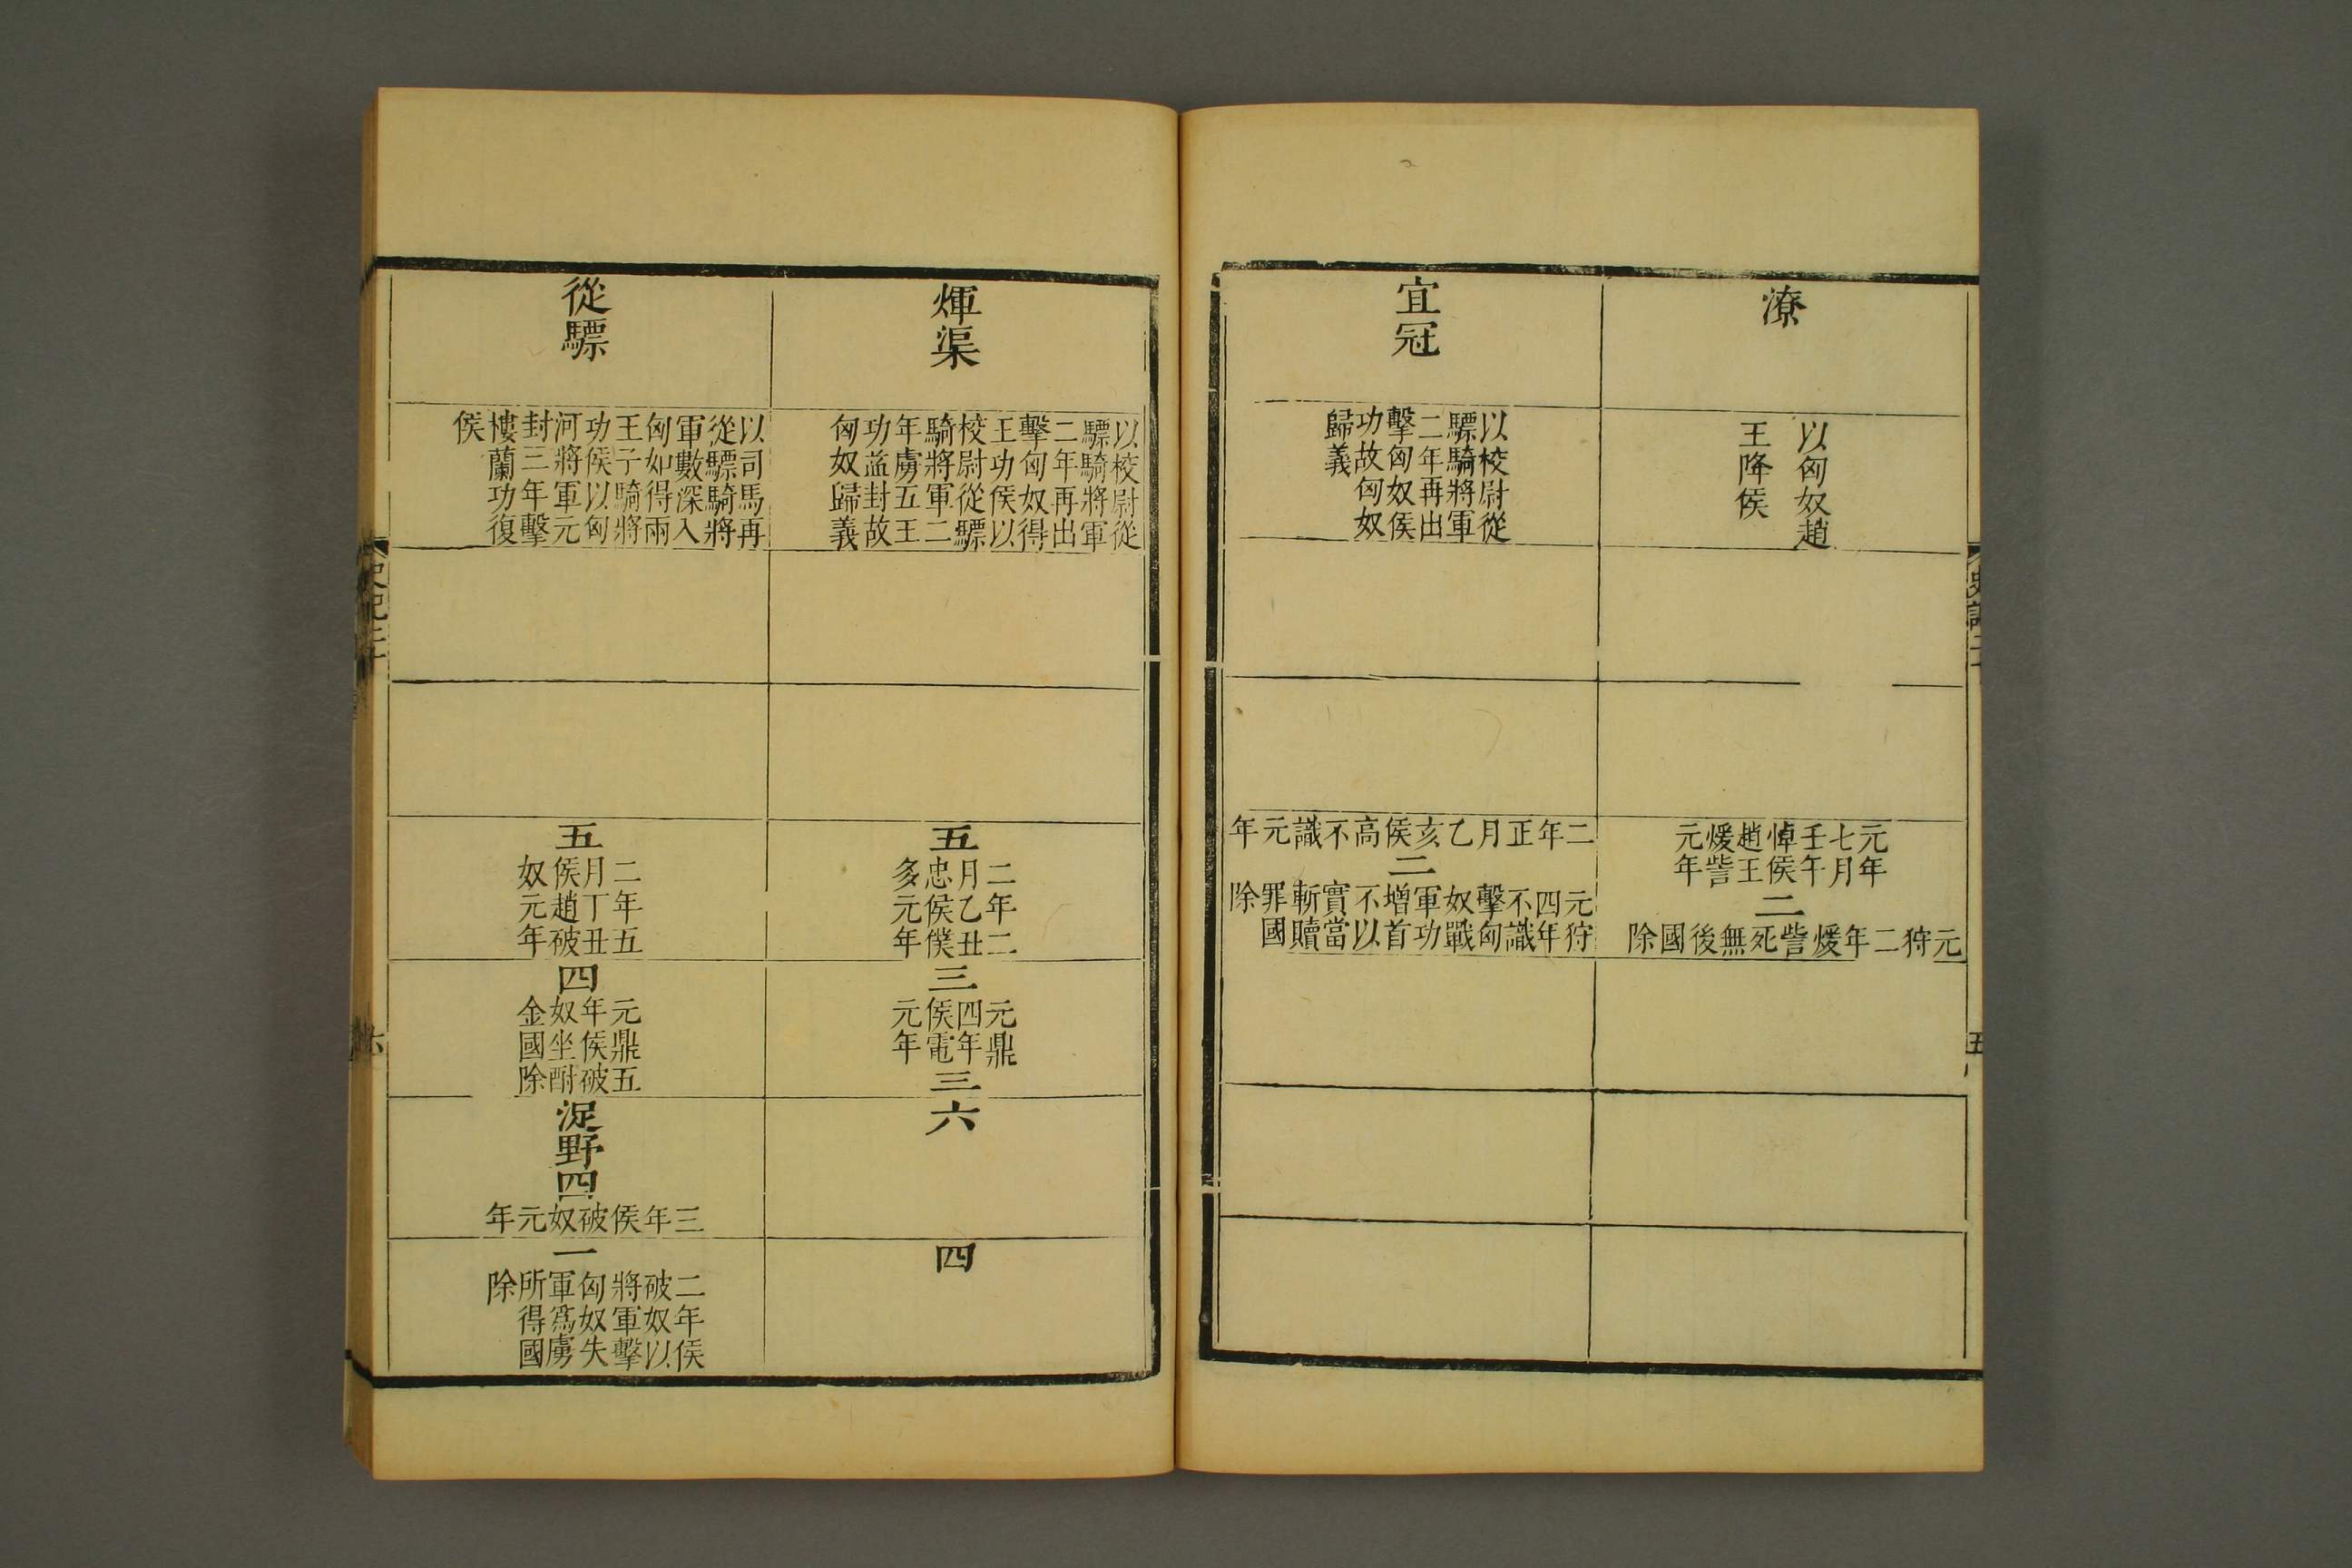 潦
以匈奴趙
王降侯
元年
七月
壬午
悼侯
趙王
煖訾
元年
二
元狩二年煖訾死無後國除
宜冠
以校尉從
驃騎將軍
二年再出
擊匈奴侯
功故匈奴
歸義
二年正月乙亥侯高不識元年
二
元狩
四年
不識
擊匈
奴戰
軍功
增首
不以
實當
斬贖
罪國
除
煇渠
以校尉從
驃騎將軍
二年再出
擊匈奴得
王功侯以
校尉從驃
騎將軍二
年虜五王
功益封故
匈奴歸義
五
二年二
月乙丑
忠侯僕
多元年
三
元鼎
四年
侯電
元年
三
六
四
從驃
以司馬再
從驃騎將
軍數深入
匈如得兩
王子騎將
功侯以匈
河將軍元
封三年擊
樓蘭功復
侯
五
二年五
月丁丑
侯趙破
奴元年
四
元鼎五
年侯破
奴坐酎
金國除
浞野
四
三年侯破奴元年
一
二年侯
破奴以
將軍擊
匈奴失
軍爲虜
所得國
除
史記二十
六